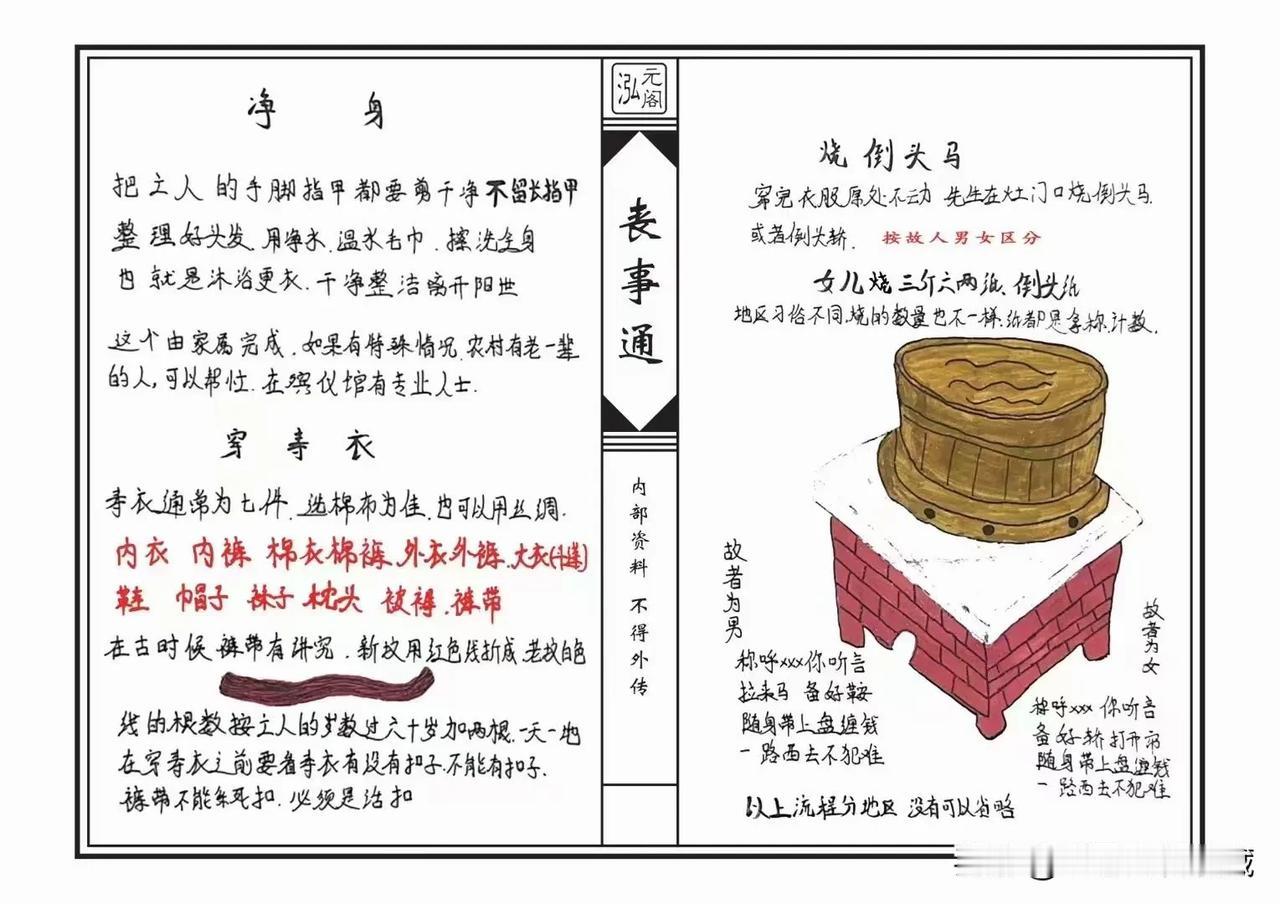 净 身
把亡人的手脚指甲都要剪干净不留长指甲
整理好头发.用净水.温水毛巾.擦洗全身
也就是沐浴更衣.干净整洁离开阳世
这个由家属完成.如果有特殊情况.农村有老一辈
的人,可以帮忙.在殡仪馆有专业人士.
穿寿衣
寿衣通常为七件.选棉布为佳.也可以用丝绸.
内衣 内裤 棉衣棉裤.外衣外裤.大衣(斗篷)
鞋 巾帽子 袜子 枕头 被褥.裤带
在古时候裤带有讲究.新坟用红色线折成 老坟白色
线的根数按亡人的岁数过六十岁加两根.一天一地
在穿寿衣之前要看寿衣有没有扣子.不能有扣子.
裤带不能系死扣.必须是活扣
泓元阁
丧事通
内部资料 不得外传
烧倒头马
穿完衣服原处不动 先生在灶门口烧倒头马
或者倒头轿. 按故人男女区分
女儿烧三斤六两纸、倒头纸
地区习俗不同.烧的数量也不一样.纸都是拿称.计数.
故者为男
称呼xxx你听言
拉来马 备好鞍
随身带上盘缠钱
一路西去不犯难
故者为女
称呼xxx 你听言
备好轿打开帘
随身带上盘缠钱
一路西去不犯难
以上流程分地区 没有可以省略